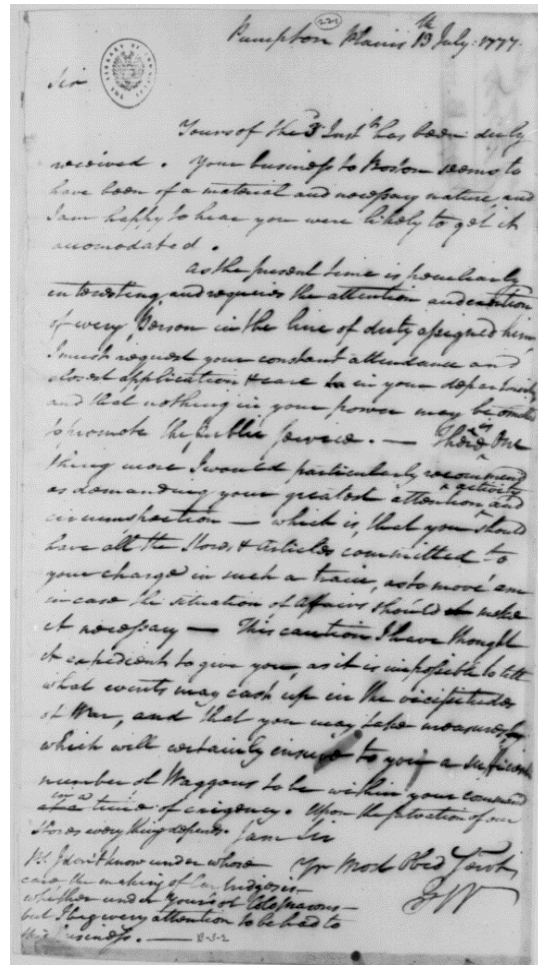 222
Pumpton Plains 13th July. 1777.
Sir
Yours of the 3 Inst. has been duly
received. Your business to Boston seems to
have been of a material and necessary nature, and
I am happy to hear you were likely to get it
accomodated.
As the present time is peculiarly
interesting, and requires the attention and exertion
of every Person in the line of duty assigned him,
I must request your constant attendance and
closest application & care in your department
and that nothing in your power may be omitted
to promote the public Service. — There is One
thing more I would particularly recommend
as demanding your greatest attention activity and
circumspection — which is, that you should
have all the Stores & Articles committed to
your charge in such a train, as to move 'em
in case the situation of Affairs should make
it necessary — This caution I have thought
it expedient to give you, as it is impossible to tell
what events may cast up in the vicissitudes
of War, and that you may take measures
which will certainly insure to you a sufficient
number of Waggons to be within your command
in a time of exigency. Upon the salvation of our
Stores every thing depends. I am Sir
Yr Most Obed Servt
GW
PS. I don't know under whose
care the making of Cartridges is—
whether under Yours or Colo Masons—
but I beg every attention to be had to
this business. — B-3-2